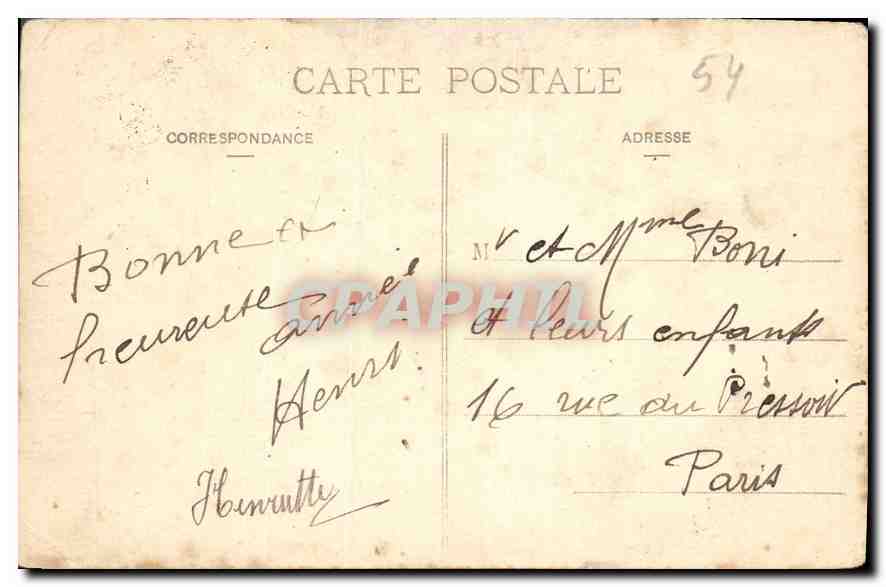 CARTE POSTALE
54
CORRESPONDANCE
ADRESSE
Bonne et
heureuse année
Henri
Henriette
Mr et Mme Boni
et leurs enfants
16 rue du Pressoir
Paris
CPAPHIL